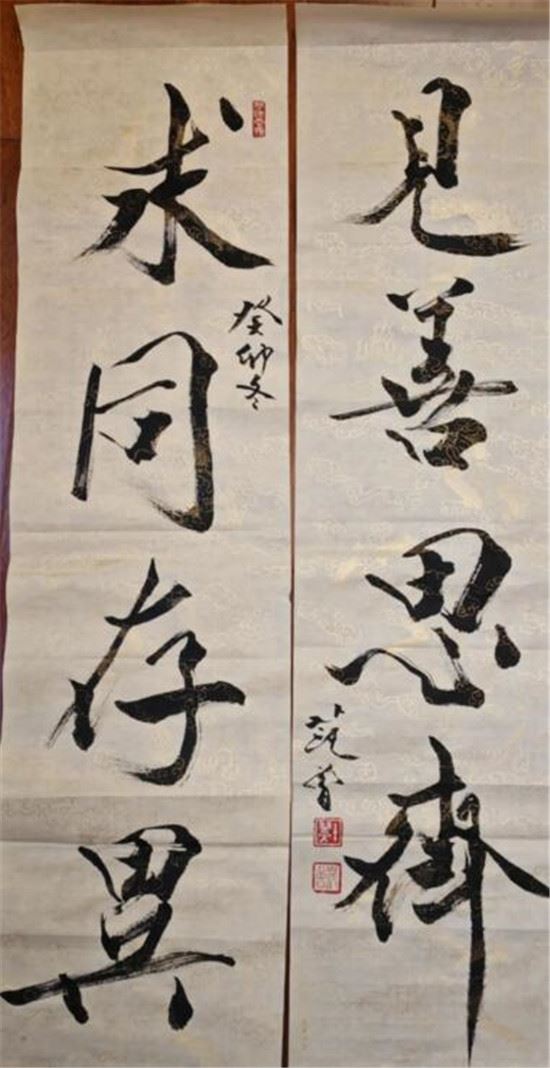 見善思齊
范
癸卯冬
求同存異